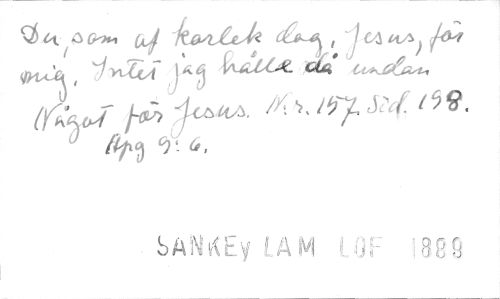 Du, som af karlek dog, Jesus, för
mig, Intet jag hålle då undan
Något för Jesus. N:r. 157. Sid. 198.
Apg 9:6.
SANKEy LAM LOF 1889